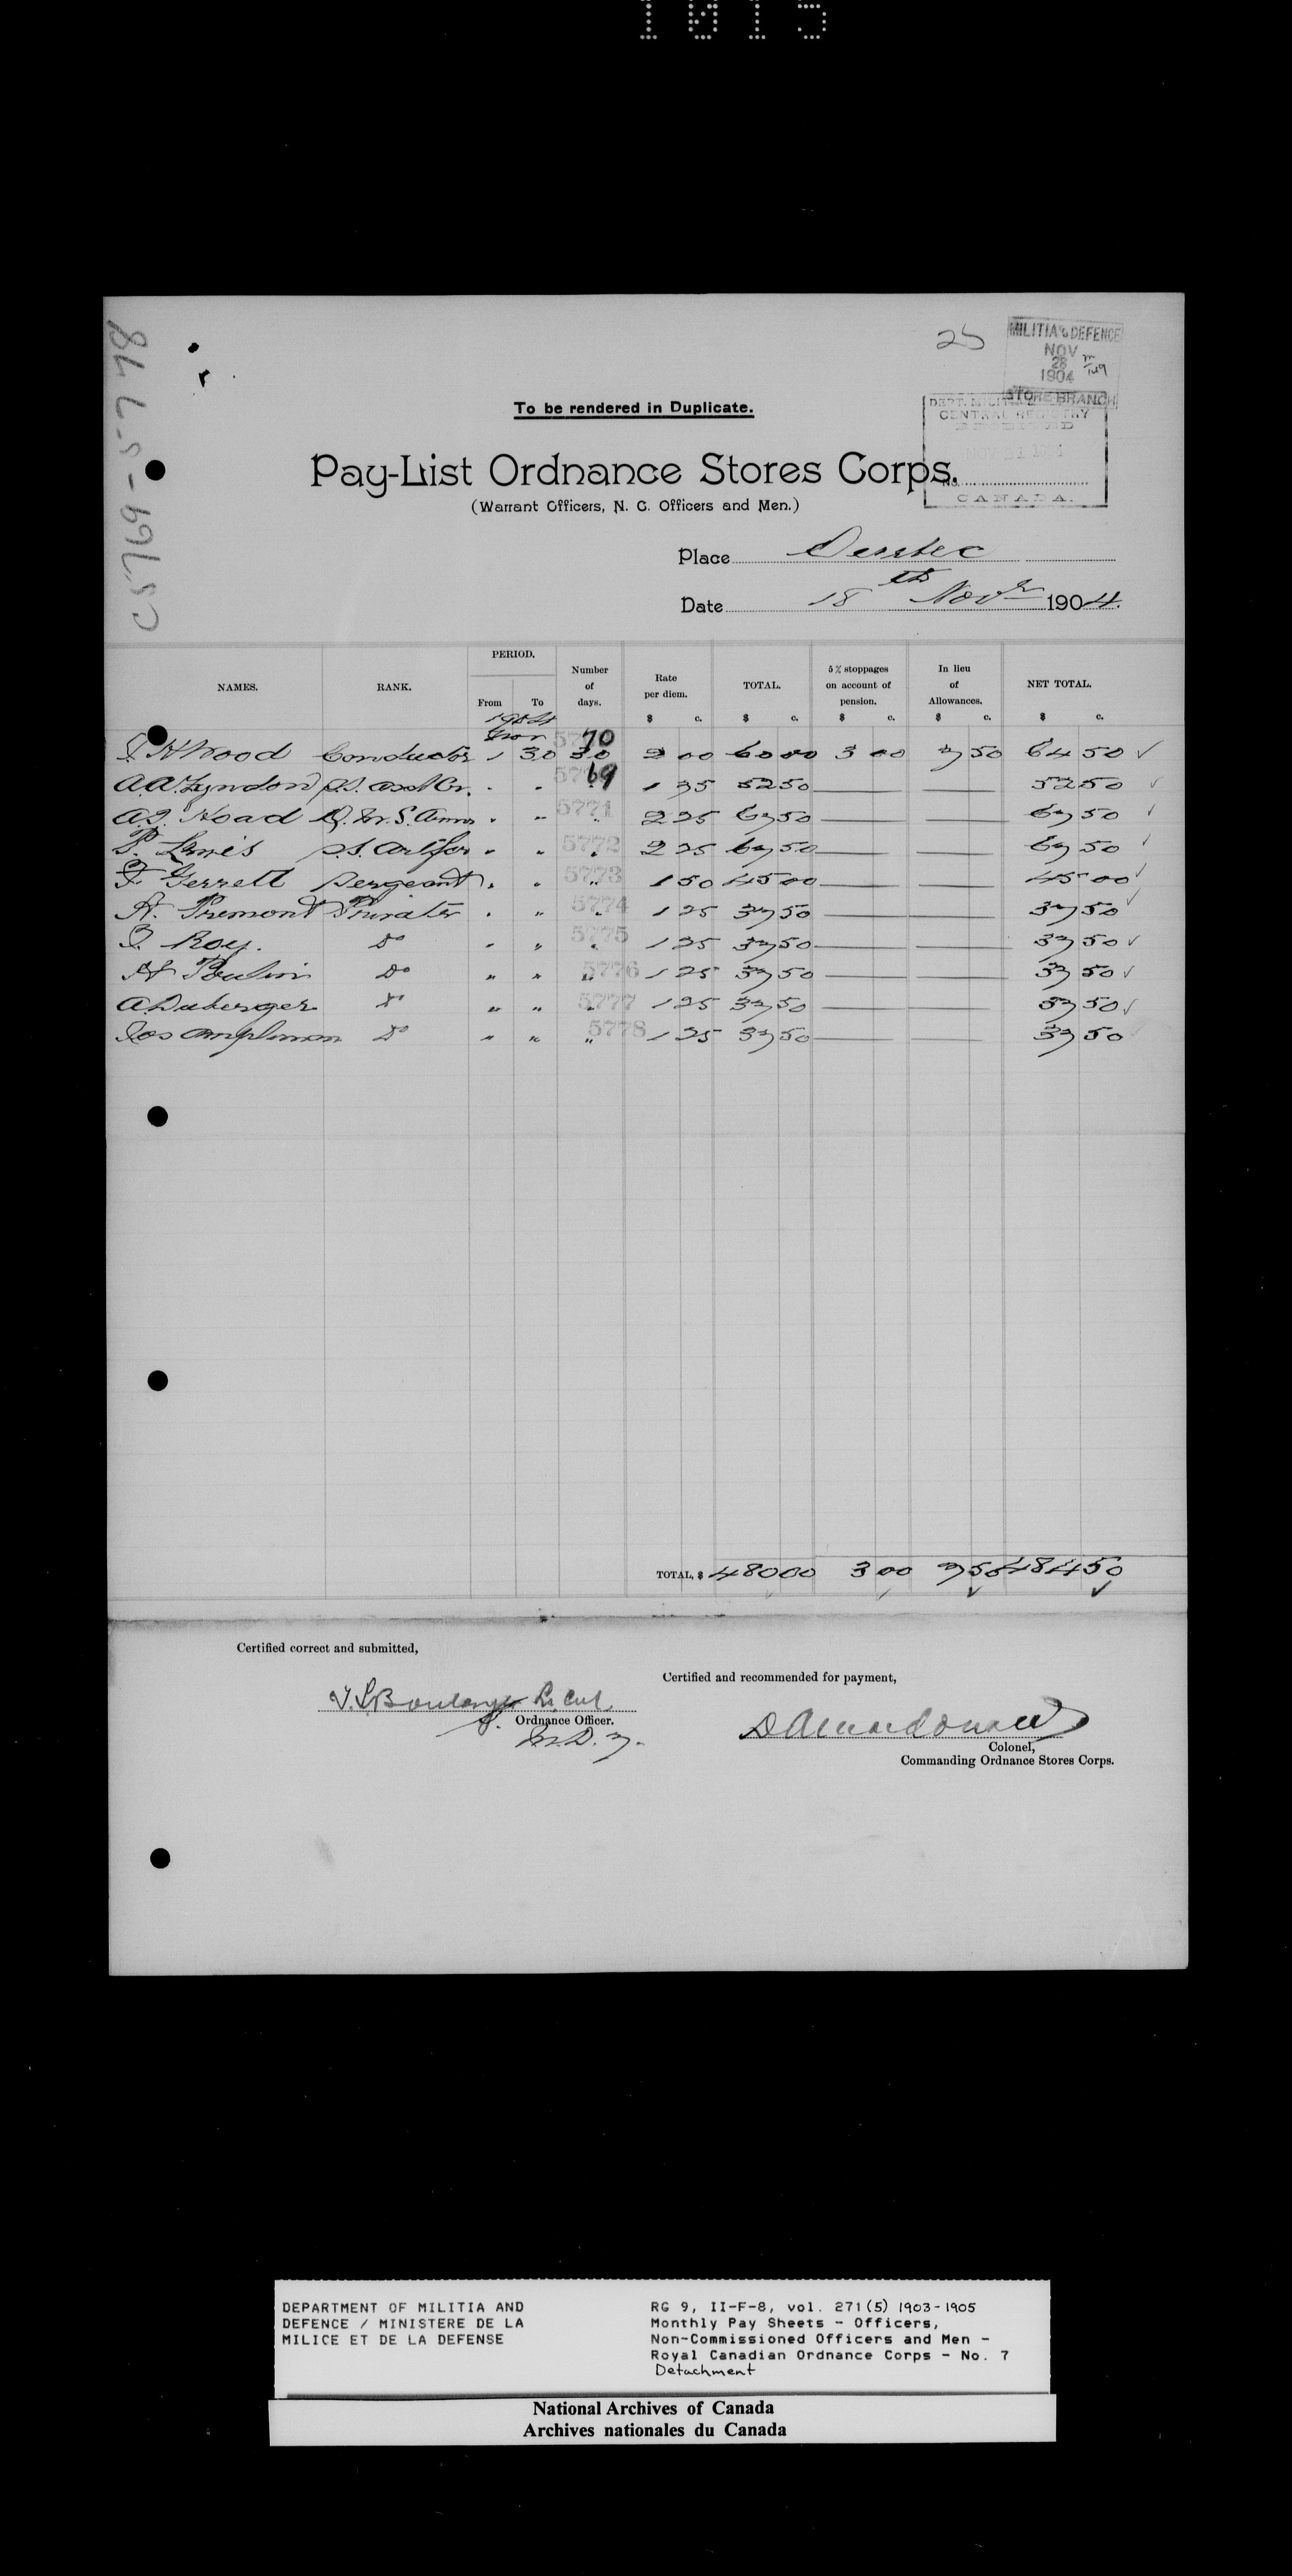 1015
C5769-5778
25
MILITIA & DEFENCE
NOV
28
1904
STORE BRANCH
CENTRAL REGISTRY
CANADA.
To be rendered in Duplicate.
Pay-List Ordnance Stores Corps.
(Warrant Officers, N. C. Officers and Men.)
Place Quebec
Date 18th Novr 1904.
NAMES. RANK. PERIOD. From To Number of days. Rate per diem. $ c. TOTAL. $ c. 5% stoppages on account of pension. $ c. In lieu of Allowances. $ c. NET TOTAL. $ c.
Nov 70
Wood Conductor 1 30 30 2 00 60 00 3 00 7 50 64 50 ✓
69
A.A. Lyndon 1 75 52 50 — — 52 50 ✓
Hoad Q.M.S. 5771 2 25 67 50 — — 67 50 ✓
Lewis 5772 2 25 67 50 — — 67 50 ✓
Gerrett Sergeant " " 5773 1 50 45 00 — — 45 00 ✓
Premont Private " " 5774 1 25 37 50 — — 37 50 ✓
Roy. Do " " 5775 1 25 37 50 — — 37 50 ✓
Poulin Do " " 5776 1 25 37 50 — — 37 50 ✓
A. Duberger Do " " 5777 1 25 37 50 — — 37 50 ✓
Jos Ampleman Do " " 5778 1 25 37 50 — — 37 50
TOTAL, $ 480 00 3 00 7 50 484 50
Certified correct and submitted,
Certified and recommended for payment,
Lieut.
Ordnance Officer.
M.D. 7.
D A Macdonald
Colonel,
Commanding Ordnance Stores Corps.
DEPARTMENT OF MILITIA AND
DEFENCE / MINISTERE DE LA
MILICE ET DE LA DEFENSE
RG 9, II-F-8, vol. 271(5) 1903-1905
Monthly Pay Sheets - Officers,
Non-Commissioned Officers and Men -
Royal Canadian Ordnance Corps - No. 7
Detachment
National Archives of Canada
Archives nationales du Canada